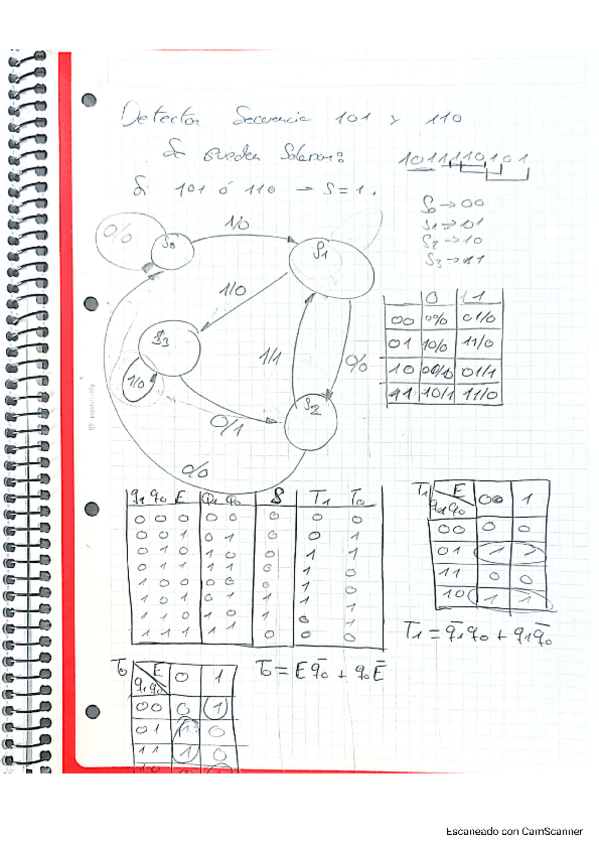 Detector Secuencia 101 y 110
Se pueden Solapar?
1011110101
Si 101 ó 110 → S=1.
S0 → 00
S1 → 01
S2 → 10
S3 → 11
0/0
S0
1/0
S1
1/0
S3
1/0
1/1
0/0
S2
0/1
0/0
0 1
00 0/0 01/0
01 10/0 11/0
10 00/0 01/1
11 10/1 11/0
q1 q0 E Q1 Q0 S T1 T0
0 0 0 0 0 0 0 0
0 0 1 0 1 0 0 1
0 1 0 1 0 0 1 1
0 1 1 1 1 0 1 0
1 0 0 0 0 0 1 0
1 0 1 0 1 1 1 1
1 1 0 1 0 1 0 1
1 1 1 1 1 0 0 0
T1 E 0 1
q1q0
00 0 0
01 1 1
11 0 0
10 1 1
T1 = q̄1q0 + q1q̄0
T0 E 0 1
q1q0
00 0 1
01 1 0
11 1 0
T0 = E q̄0 + q0 Ē
Escaneado con CamScanner